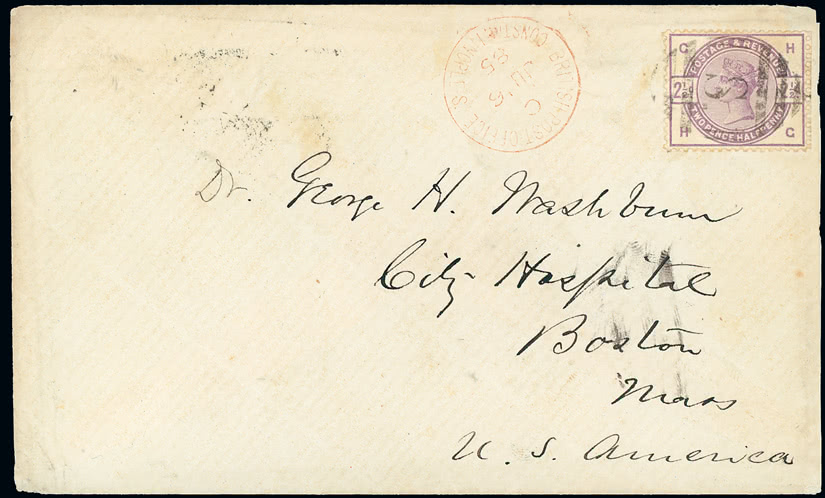 BRITISH POST OFFICE CONSTANTINOPLE S
C
JU 6
85
C H
POSTAGE & REVENUE
2½ᵈ 2½ᵈ
TWO PENCE HALFPENNY
H C
Dr. George H. Washburn
City Hospital
Boston
Mass
U. S. America